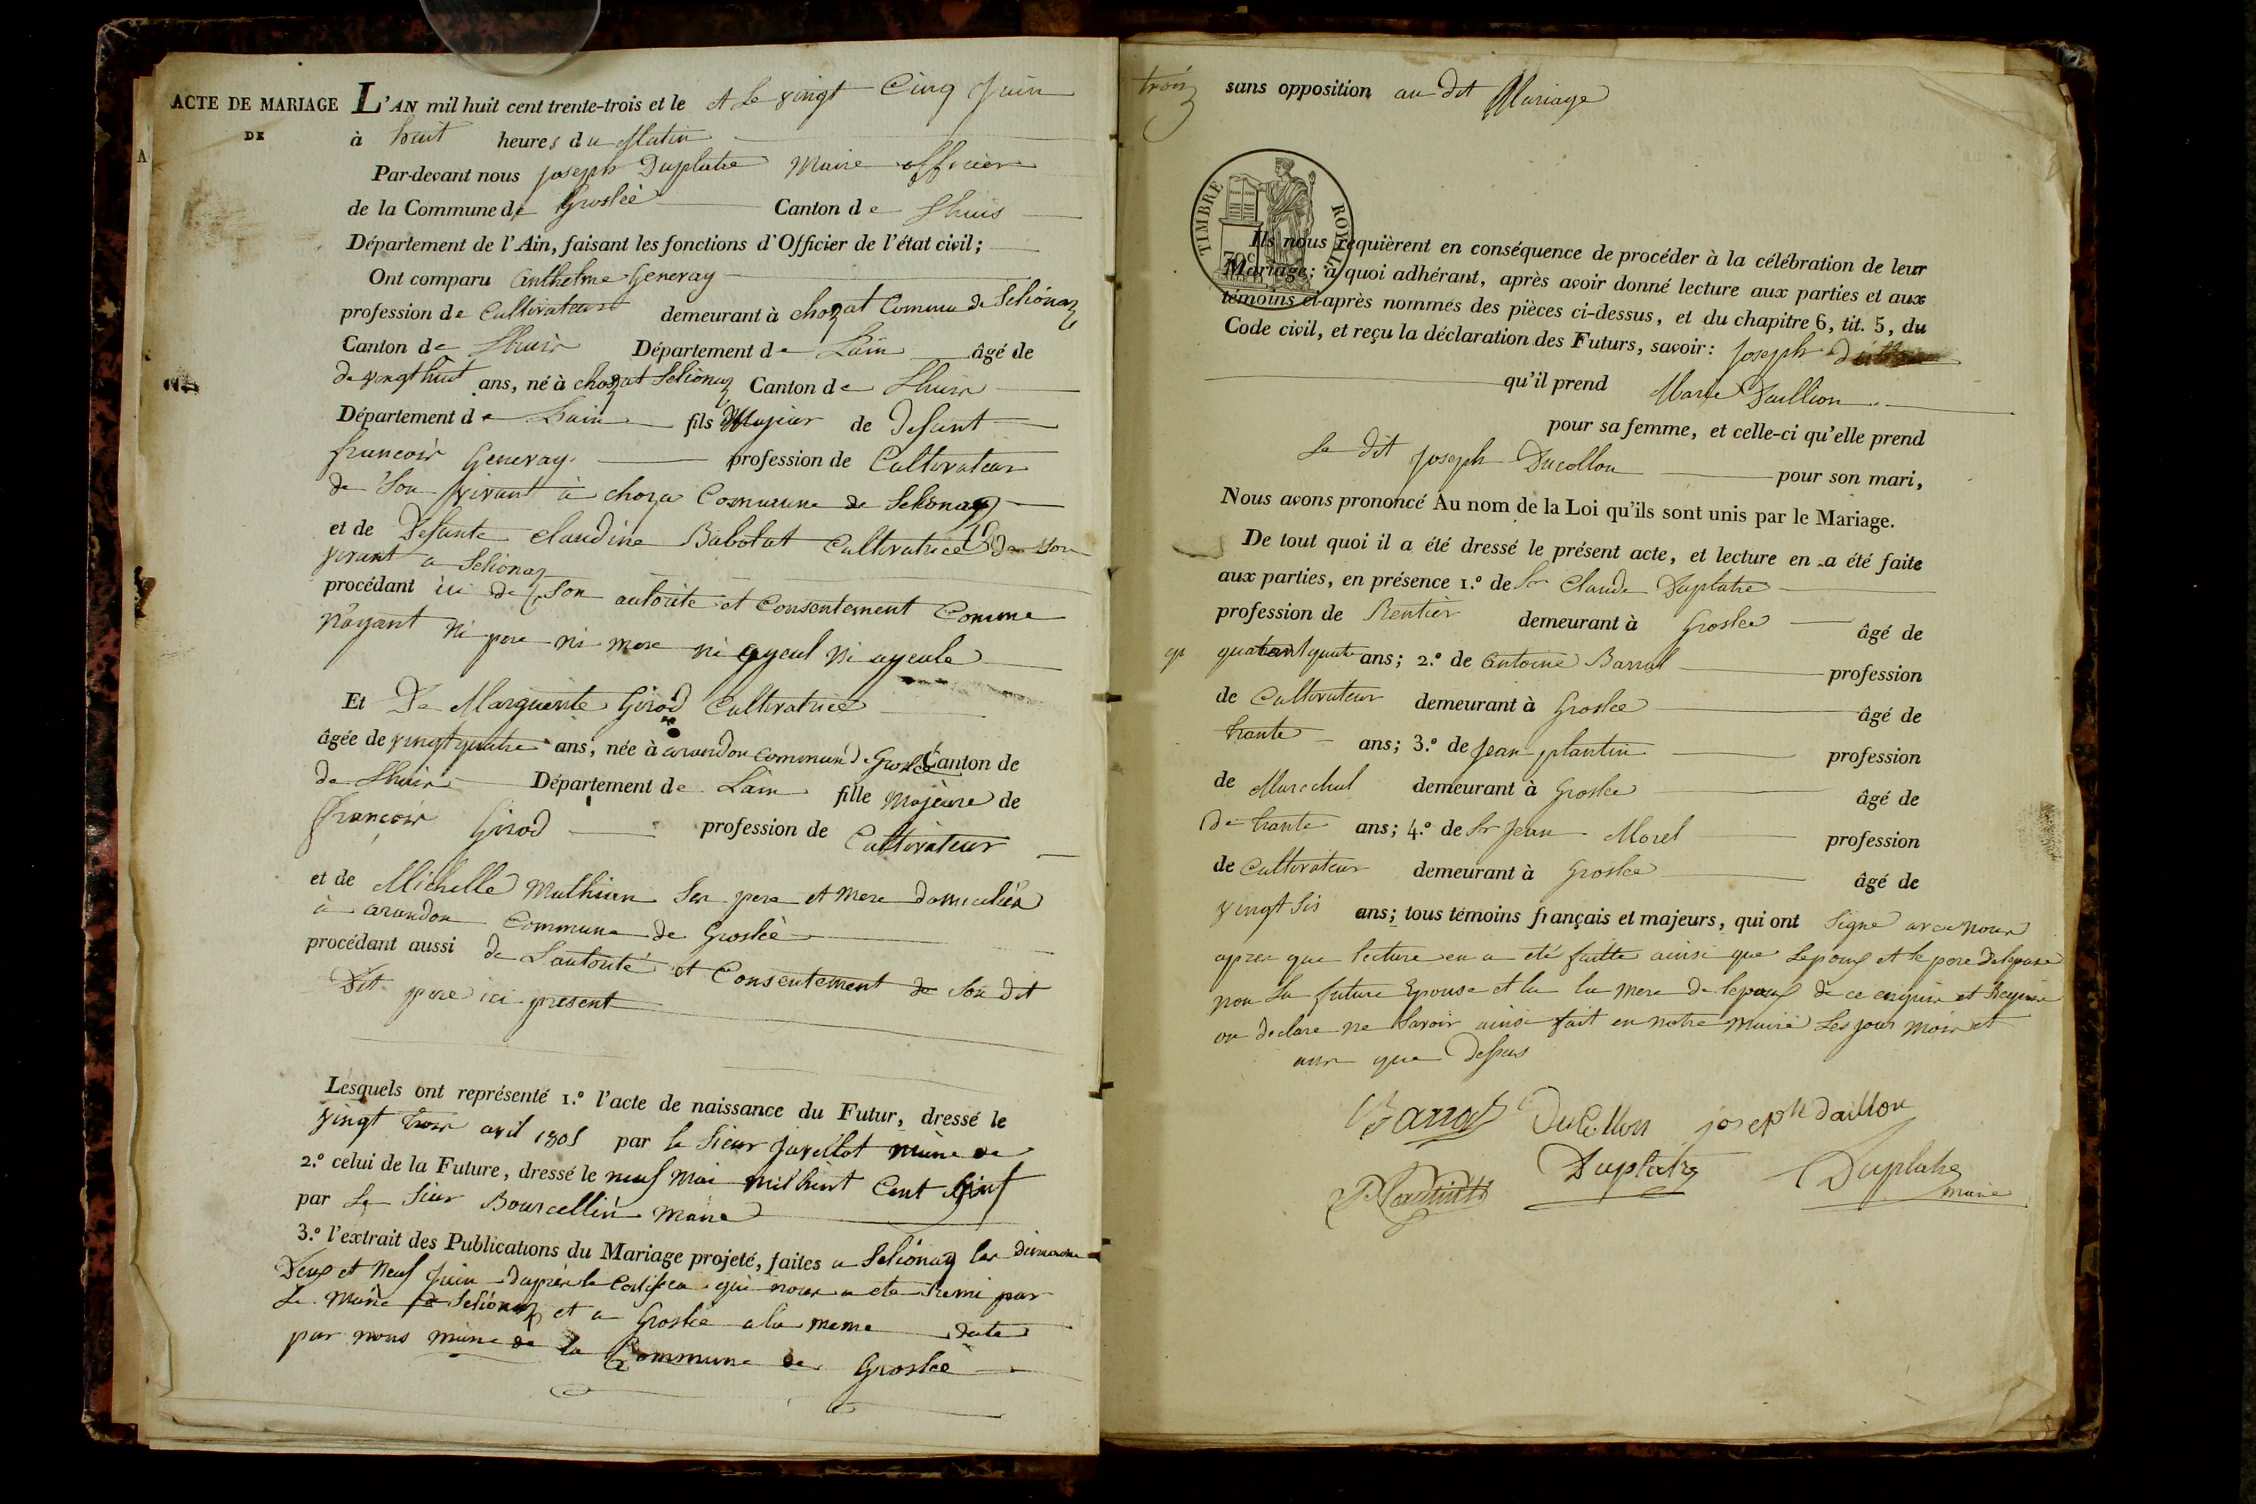 ACTE DE MARIAGE
DE
L'AN mil huit cent trente-trois et le et Le vingt Cinq Juin
à huit heures du Matin
Par-devant nous joseph Duplatre Maire officier
de la Commune de Groslée Canton de Lhuis
Département de l'Ain, faisant les fonctions d'Officier de l'état civil;
Ont comparu Anthelme Generay
profession de Cultivateur demeurant à chozat Commune de Seliönaz
Canton de Lhuis Département de Lain âgé de
de vingt huit ans, né à chozat Seliönaz Canton de Lhuis
Département de Lain fils Majeur de Defunt
françois Generay profession de Cultivateur
de Son vivant à choza Commune de Selionaz
et de Defunte claudine Babolat Cultivatrice de son
vivant a Selionaz
procédant ici de Son autorité et Consentement Comme
n'ayant ni pere ni mere ni ayeul ni ayeule
Et De Marguerite Girod Cultivatrice
âgée de vingt quatre ans, née à arandon commune de Groslée Canton de
de Lhuis Département de Lain fille Majeure de
françois Girod profession de Cultivateur
et de Michelle Mathieu Ses pere et Mere domiciliés
à arandon Commune de Groslée
procédant aussi de Lautorité et Consentement de Son dit
Dit pere ici present
Lesquels ont représenté 1.º l'acte de naissance du Futur, dressé le
vingt trois avril 1805 par le Sieur Juvellot maire de
2.º celui de la Future, dressé le neuf Mai mil huit Cent Neuf
par Le Sieur Bourcellin Maire
3.º l'extrait des Publications du Mariage projeté, faites a Selionaz les dimanche
Deux et Neuf Juin dapres le Certificat qui nous a ete Remi par
Le Maire de Selionaz et a Groslée a la meme date
par nous maire de la Commune de Groslée
trois
sans opposition au dit Mariage
TIMBRE ROYAL
70c
Ils nous requièrent en conséquence de procéder à la célébration de leur
Mariage; à quoi adhérant, après avoir donné lecture aux parties et aux
témoins ci-après nommés des pièces ci-dessus, et du chapitre 6, tit. 5, du
Code civil, et reçu la déclaration des Futurs, savoir: joseph
qu'il prend Marie Daillion
pour sa femme, et celle-ci qu'elle prend
Le dit joseph Ducollon pour son mari,
Nous avons prononcé Au nom de la Loi qu'ils sont unis par le Mariage.
De tout quoi il a été dressé le présent acte, et lecture en a été faite
aux parties, en présence 1.º de Sr Claude Duplatre
profession de Rentier demeurant à Groslee âgé de
ans; 2.º de Antoine Barral profession
de Cultivateur demeurant à Groslee âgé de
trante ans; 3.º de Jean plantin profession
de Marechal demeurant à Groslee âgé de
de trante ans; 4.º de Sr Jean Morel profession
de Cultivateur demeurant à Groslee âgé de
vingt Sis ans; tous témoins français et majeurs, qui ont Signe avec nous
apres que lecture en a été faitte ainsi que Lepoux et le pere de lepouse
non La future Epouse et la mere de lepoux de ce enquis et Requise
on declare ne Savoir ainsi fait en notre Mairie Les jour Mois et
ans que Dessus
Barral Ducollon joseph daillon
Plantin Duplatre Duplatre
maire